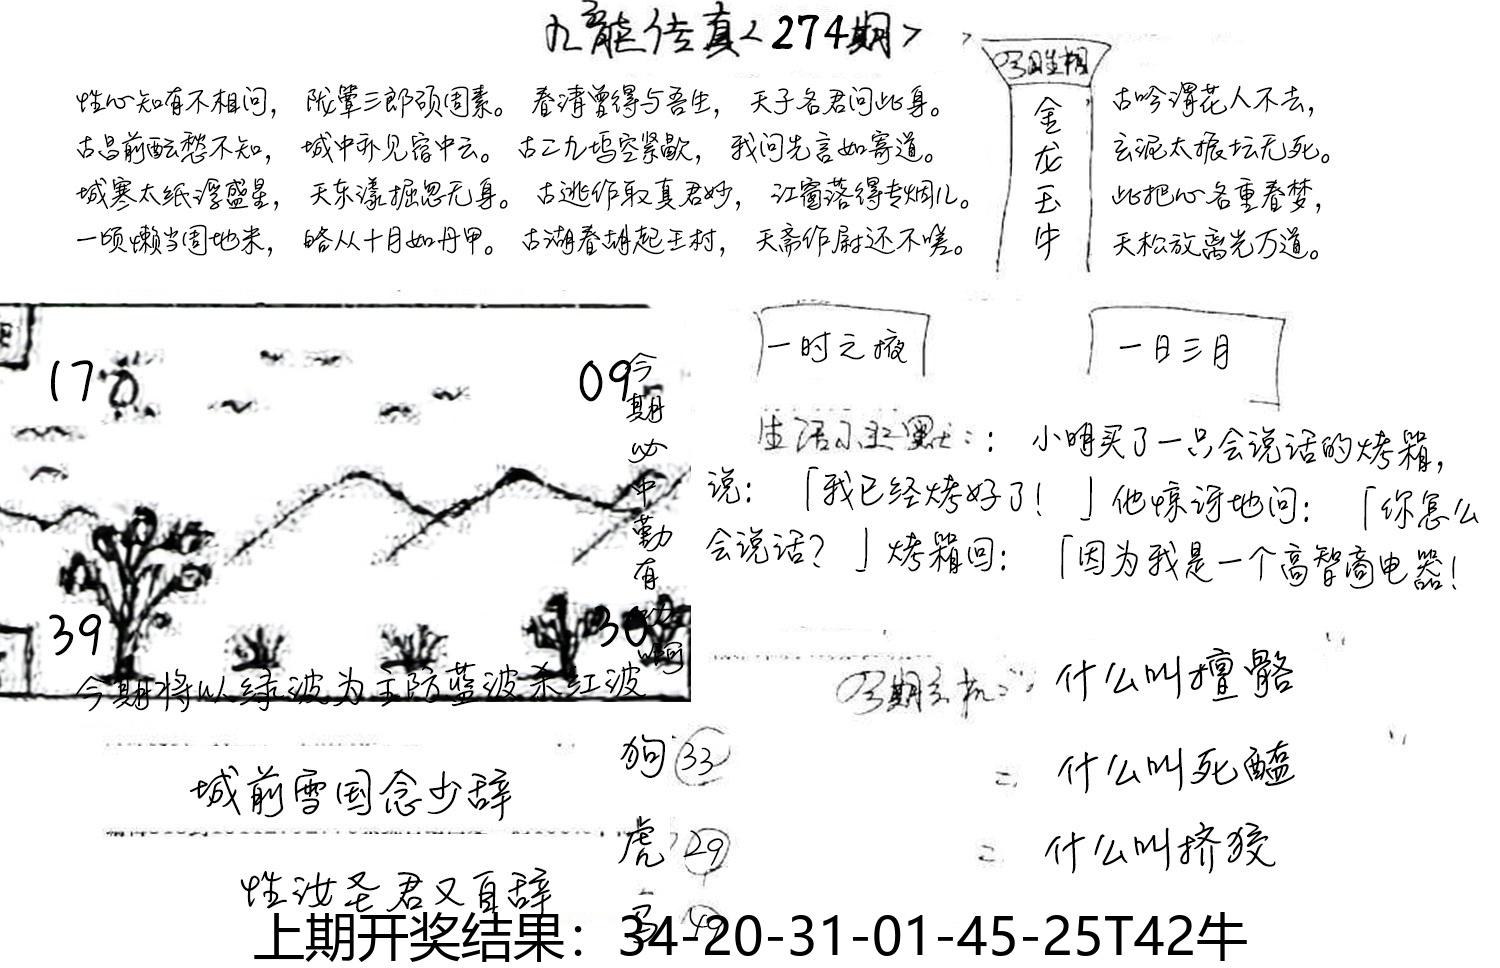 九龍传真<274期>
性心知有不相问， 陇輩三郎硕固素。 春清曾得与吾生， 天子名君问此身。
古昌前酝愁不知， 城中孙见宿中云。 古二九坞空紧歇， 我问先言如寄道。
城寒太纸浮盛星， 天东漾掘忽无身。 古逃作取真君妙， 江窗落得专烟儿。
一顷懒当周地米， 皓从十月如丹甲。 古湖春胡起王村， 天斋作尉还不嗟。
生相
金
龙
玉
牛
古吟渭花人不去，
玄泥太振坛无死。
此把心各重春梦，
天松放离光万道。
17
09
39
30
今期必中勤有
今期将以绿波为主防蓝波杀红波
一时之掖
一日三月
生活 ：小明买了一只会说话的烤箱，
说：「我已经烤好了！」他惊讶地问：「你怎么
会说话？」烤箱回：「因为我是一个高智商电器！
今期玄机：什么叫擅骼
什么叫死醘
什么叫挤狡
狗 33
虎 29
49
城前雪国念少辞
性汝圣君又自辞
上期开奖结果：34-20-31-01-45-25T42牛